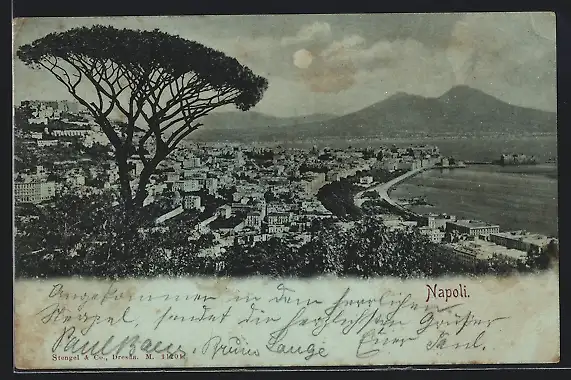 Napoli.
Angekommen in dem herrlichen
Neapel, sendet die herzlichsten Grüsse
Euer Paul.
Paul Bruno Lange
Stengel & Co., Dresden. M. 11201